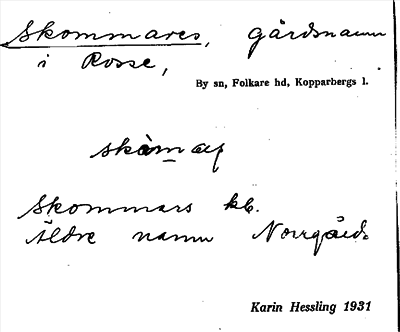 Skommares, gårdsnamn
i Rosse,
By sn, Folkare hd, Kopparbergs l.
Skommars kb.
Äldre namn Norrgård.
Karin Hessling 1931